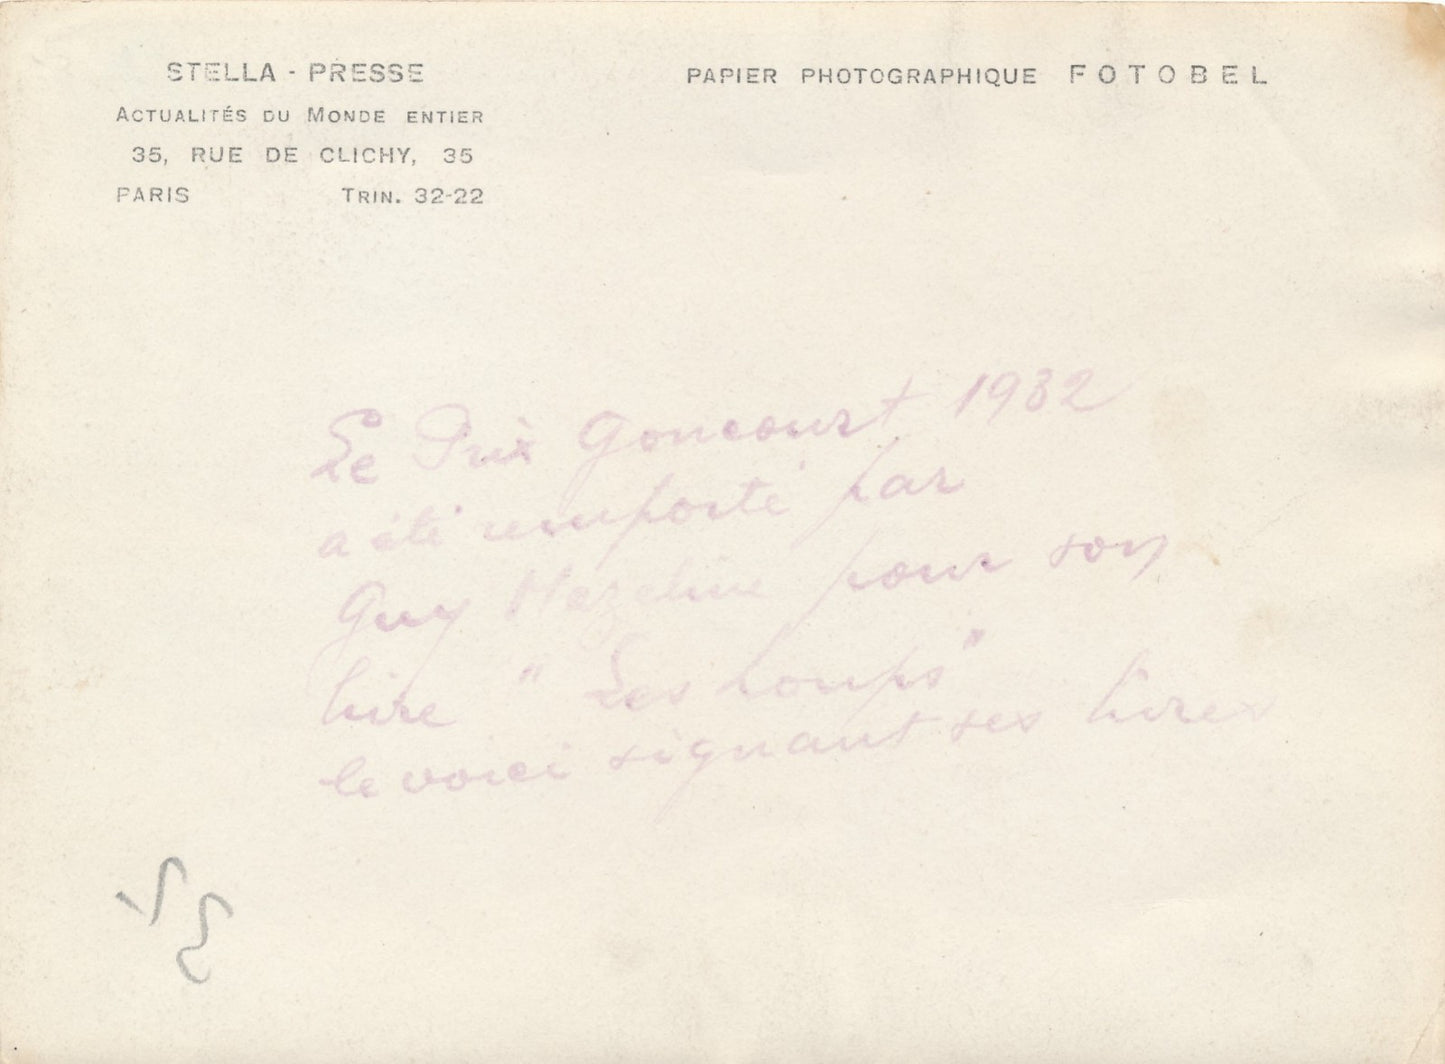 STELLA - PRESSE
ACTUALITÉS DU MONDE ENTIER
35, RUE DE CLICHY, 35
PARIS TRIN. 32-22
PAPIER PHOTOGRAPHIQUE FOTOBEL
Le Prix Goncourt 1932
a été remporté par
Guy Mazeline pour son
livre "Les Loups"
le voici signant ses livres